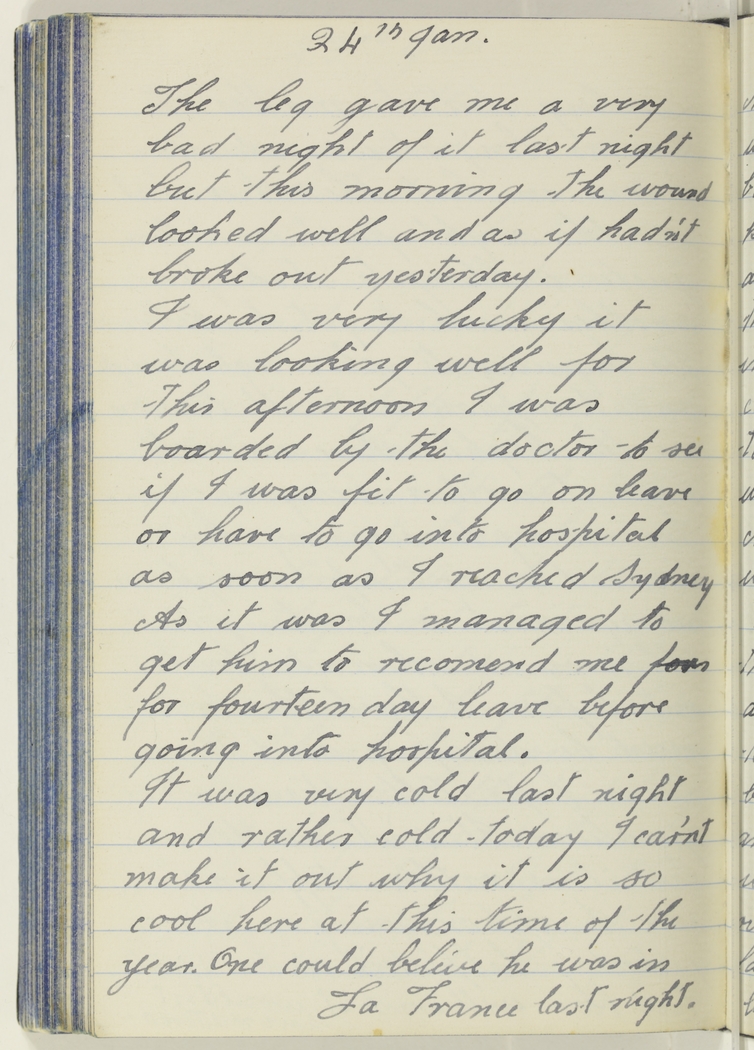 24th Jan.
The leg gave me a very
bad night of it last night
but this morning the wound
looked well and as if hadn't
broke out yesterday.
I was very lucky it
was looking well for
this afternoon I was
boarded by the doctor to see
if I was fit to go on leave
or have to go into hospital
as soon as I reached Sydney
As it was I managed to
get him to recomend me
for fourteen day leave before
going into hospital.
It was very cold last night
and rather cold today I can't
make it out why it is so
cool here at this time of the
year. One could belive he was in
La France last night.